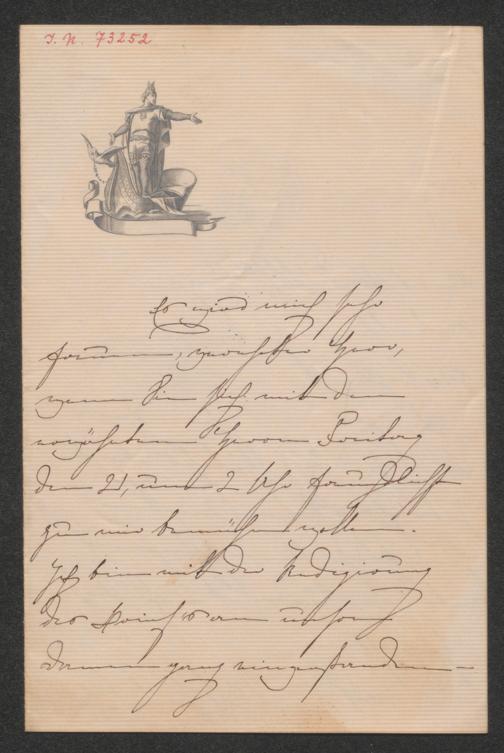 I. N. 73252
Es wird mich sehr
freuen, geehrter Herr,
wenn Sie sich mit dem
erwähnten Herrn Freiberg
den 21, um 2 Uhr freundlichst
zu mir bemühen wollen.
Ich bin mit der Redigierung
des
ganz einverstanden —